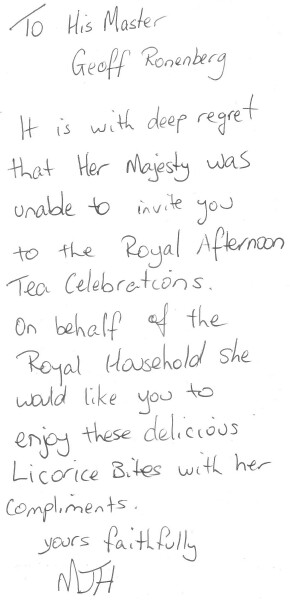 To His Master
Geoff Ronenberg
It is with deep regret
that Her Majesty was
unable to invite you
to the Royal Afternoon
Tea Celebrations.
On behalf of the
Royal Household she
would like you to
enjoy these delicious
Licorice Bites with her
compliments.
yours faithfully
MJH